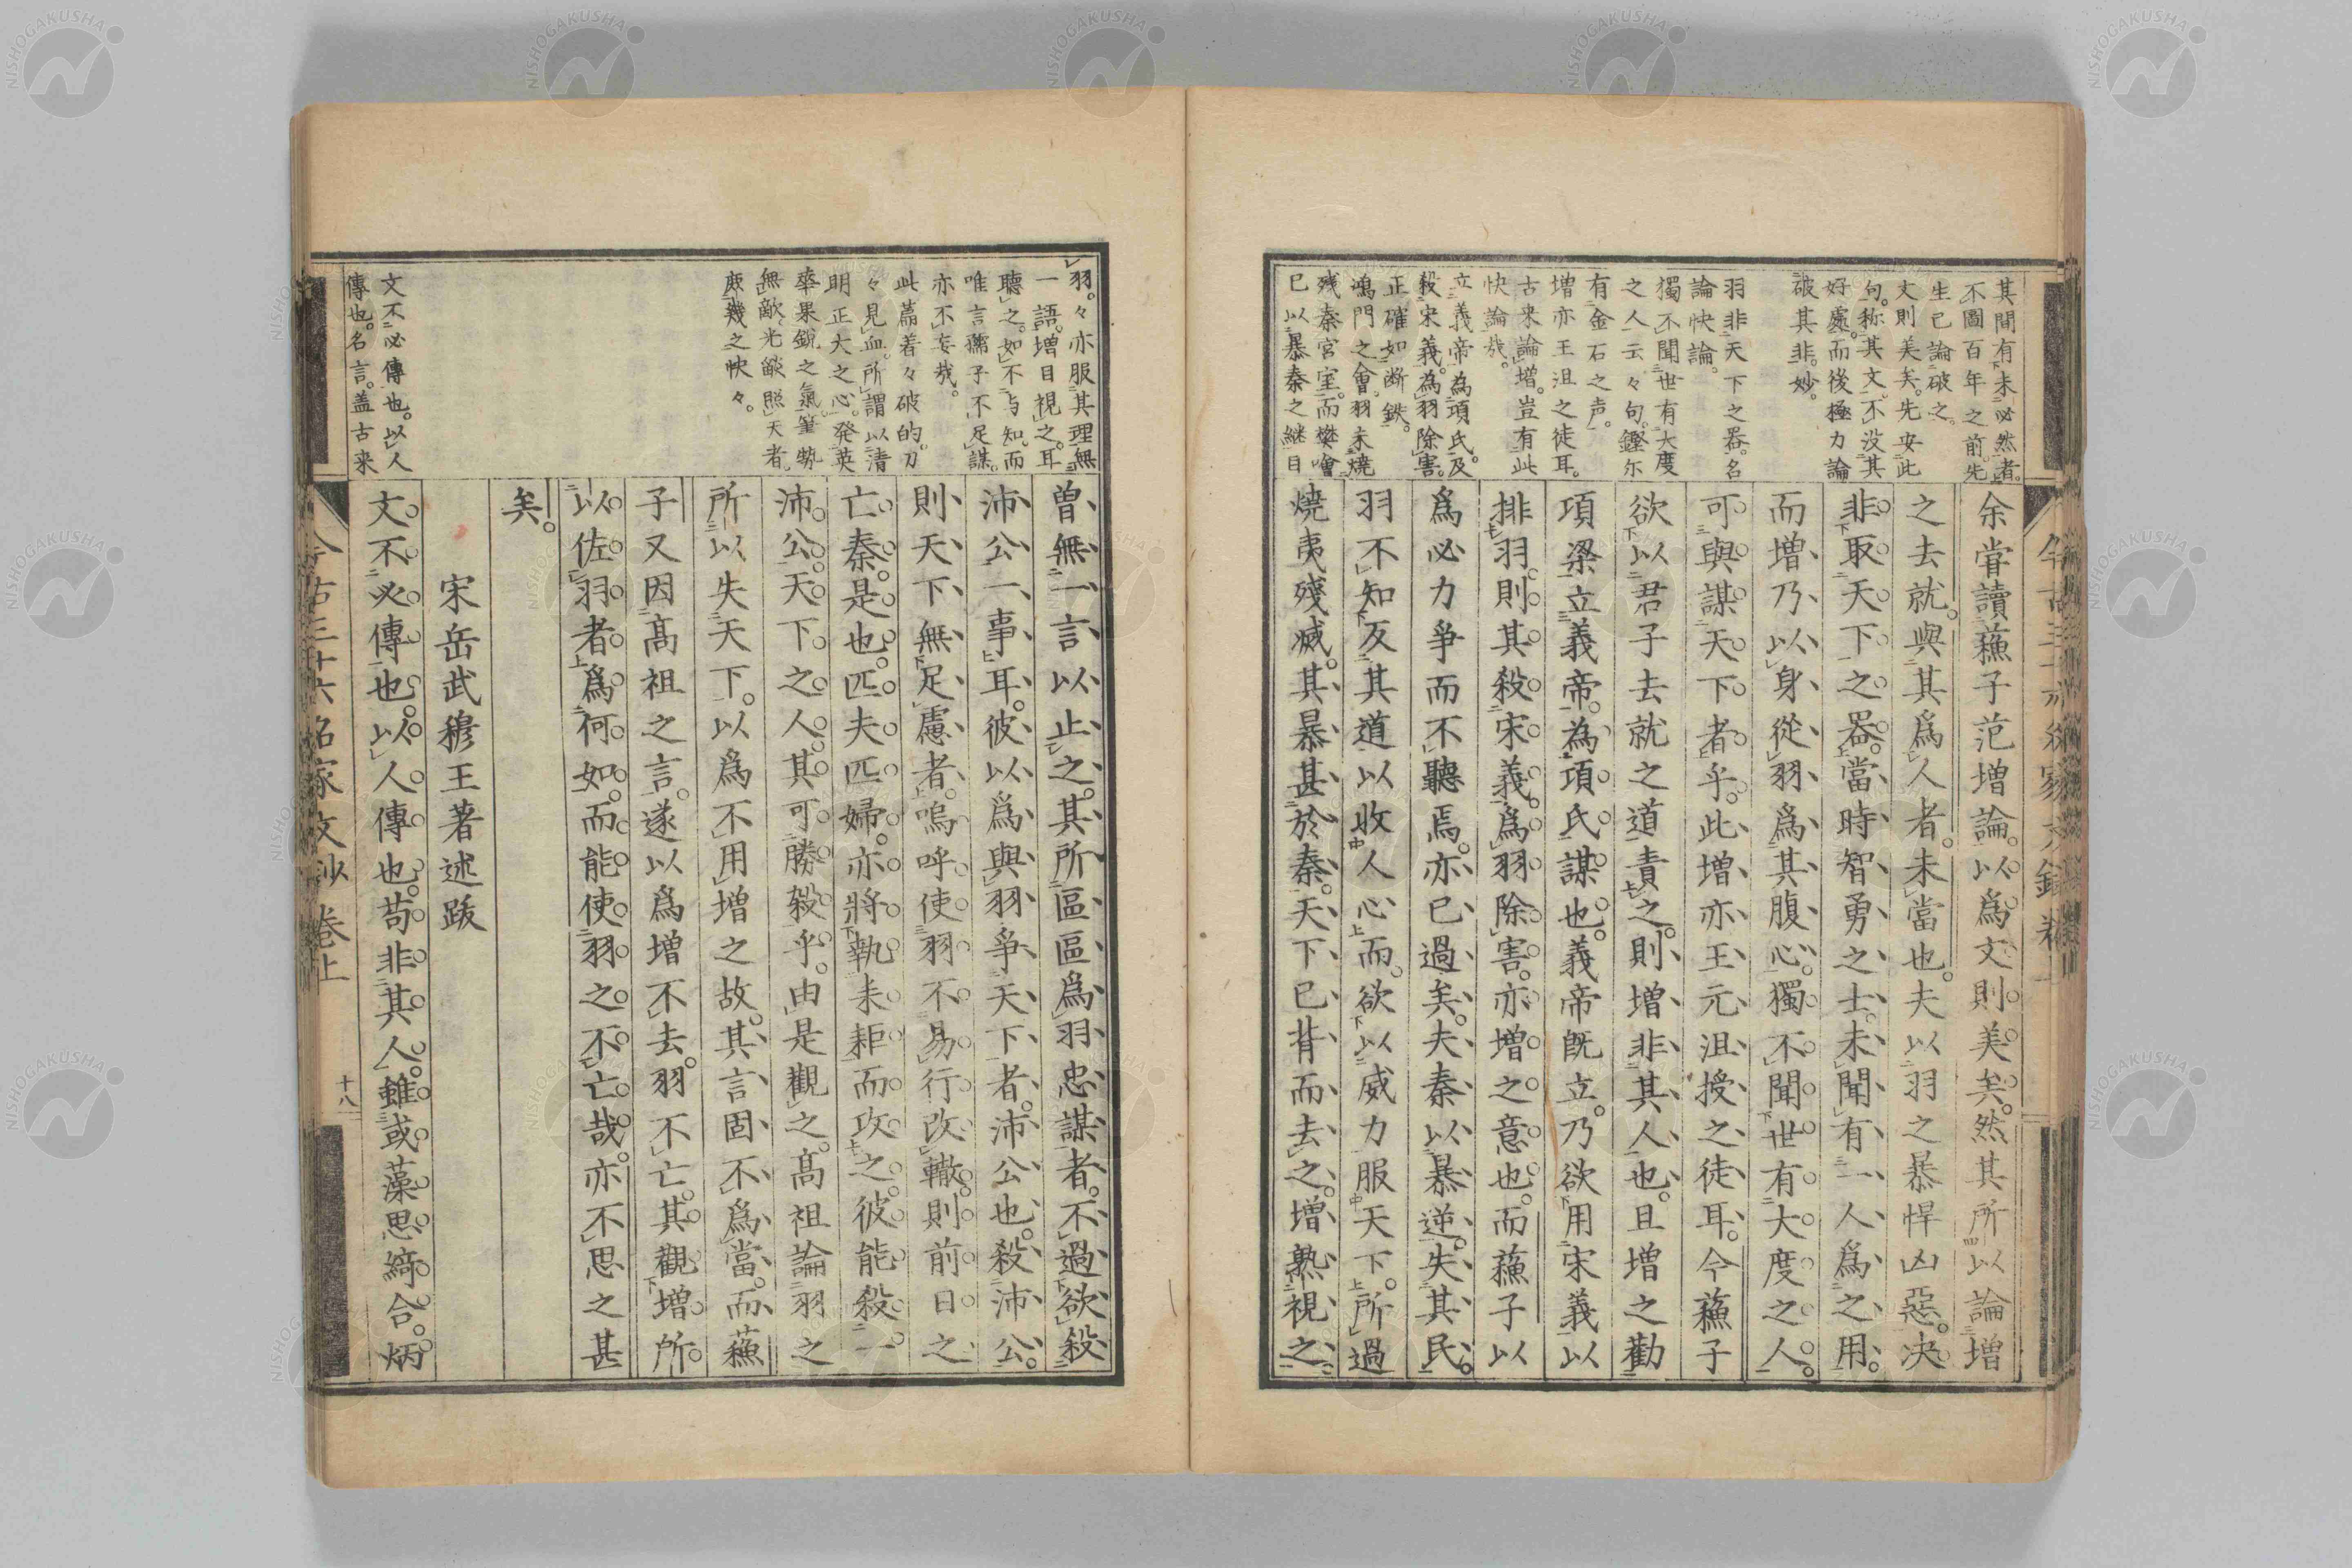 其間有未必然者
不圖百年之前先
生已論破之
文則美矣先安此
句称其文不没其
好處而後極力論
破其非妙
羽非天下之器名
論快論
獨不聞世有大度
之人云々句鏗尓
有金石之声
増亦王沮之徒耳
古来論増豈有此
快論哉
立義帝為項氏及
殺宋義為羽除害
正確如断鉄
鴻門之會羽未燒
残秦宮室而樊噲
已以暴秦之継目
余甞讀蘓子范増論。以爲文則美矣。然其所以論増
之去就。與其爲人者。未當也。夫以羽之暴悍凶惡。决
非取天下之器。當時智勇之士。未聞有一人爲之用。
而増乃以身從羽爲其腹心。獨不聞世有大度之人。
可與謀天下者乎。此増亦王元沮授之徒耳。今蘓子
欲以君子去就之道責之。則増非其人也。且増之勸
項梁立義帝。為項氏謀也。義帝既立。乃欲用宋義以
排羽。則其殺宋義。爲羽除害。亦増之意也。而蘓子以
爲必力争而不聽焉。亦已過矣。夫秦以暴逆。失其民。
羽不知反其道以收人心。而欲以威力服天下。所過
燒夷殘滅。其暴甚於秦。天下已背而去之。増熟視之
羽。々亦服其理無
一語。増目視之。耳
聽之。如不与知。而
唯言孺子不足謀。
亦不妄哉。
此篇着々破的。刀
々見血。所謂以清
明正大之心。発英
華果鋭之氣。筆勢
無敵。光燄照天者。
庶幾之快々。
曽無一言以止之。其所區區爲羽忠謀者。不過欲殺
沛公一事耳。彼以爲與羽争天下者。沛公也。殺沛公。
則天下無足慮者。嗚呼使羽不易行改轍。則前日之
亡秦。是也。匹夫匹婦。亦將執耒耟而攻之。彼能殺一
沛公。天下之人。其可勝殺乎。由是觀之。高祖論羽之
所以失天下。以爲不用増之故。其言固不爲當。而蘓
子又因高祖之言。遂以爲増不去。羽不亡。其觀増所
以佐羽者。爲何如。而能使羽之不亡哉。亦不思之甚
矣。
宋岳武穆王著述跋
文不必傳也。以人
傳也。名言。盖古来
文不必傳也。以人傳也。苟非其人。雖或藻思綺合。炳
今古三十六名家文鈔 卷上
十八